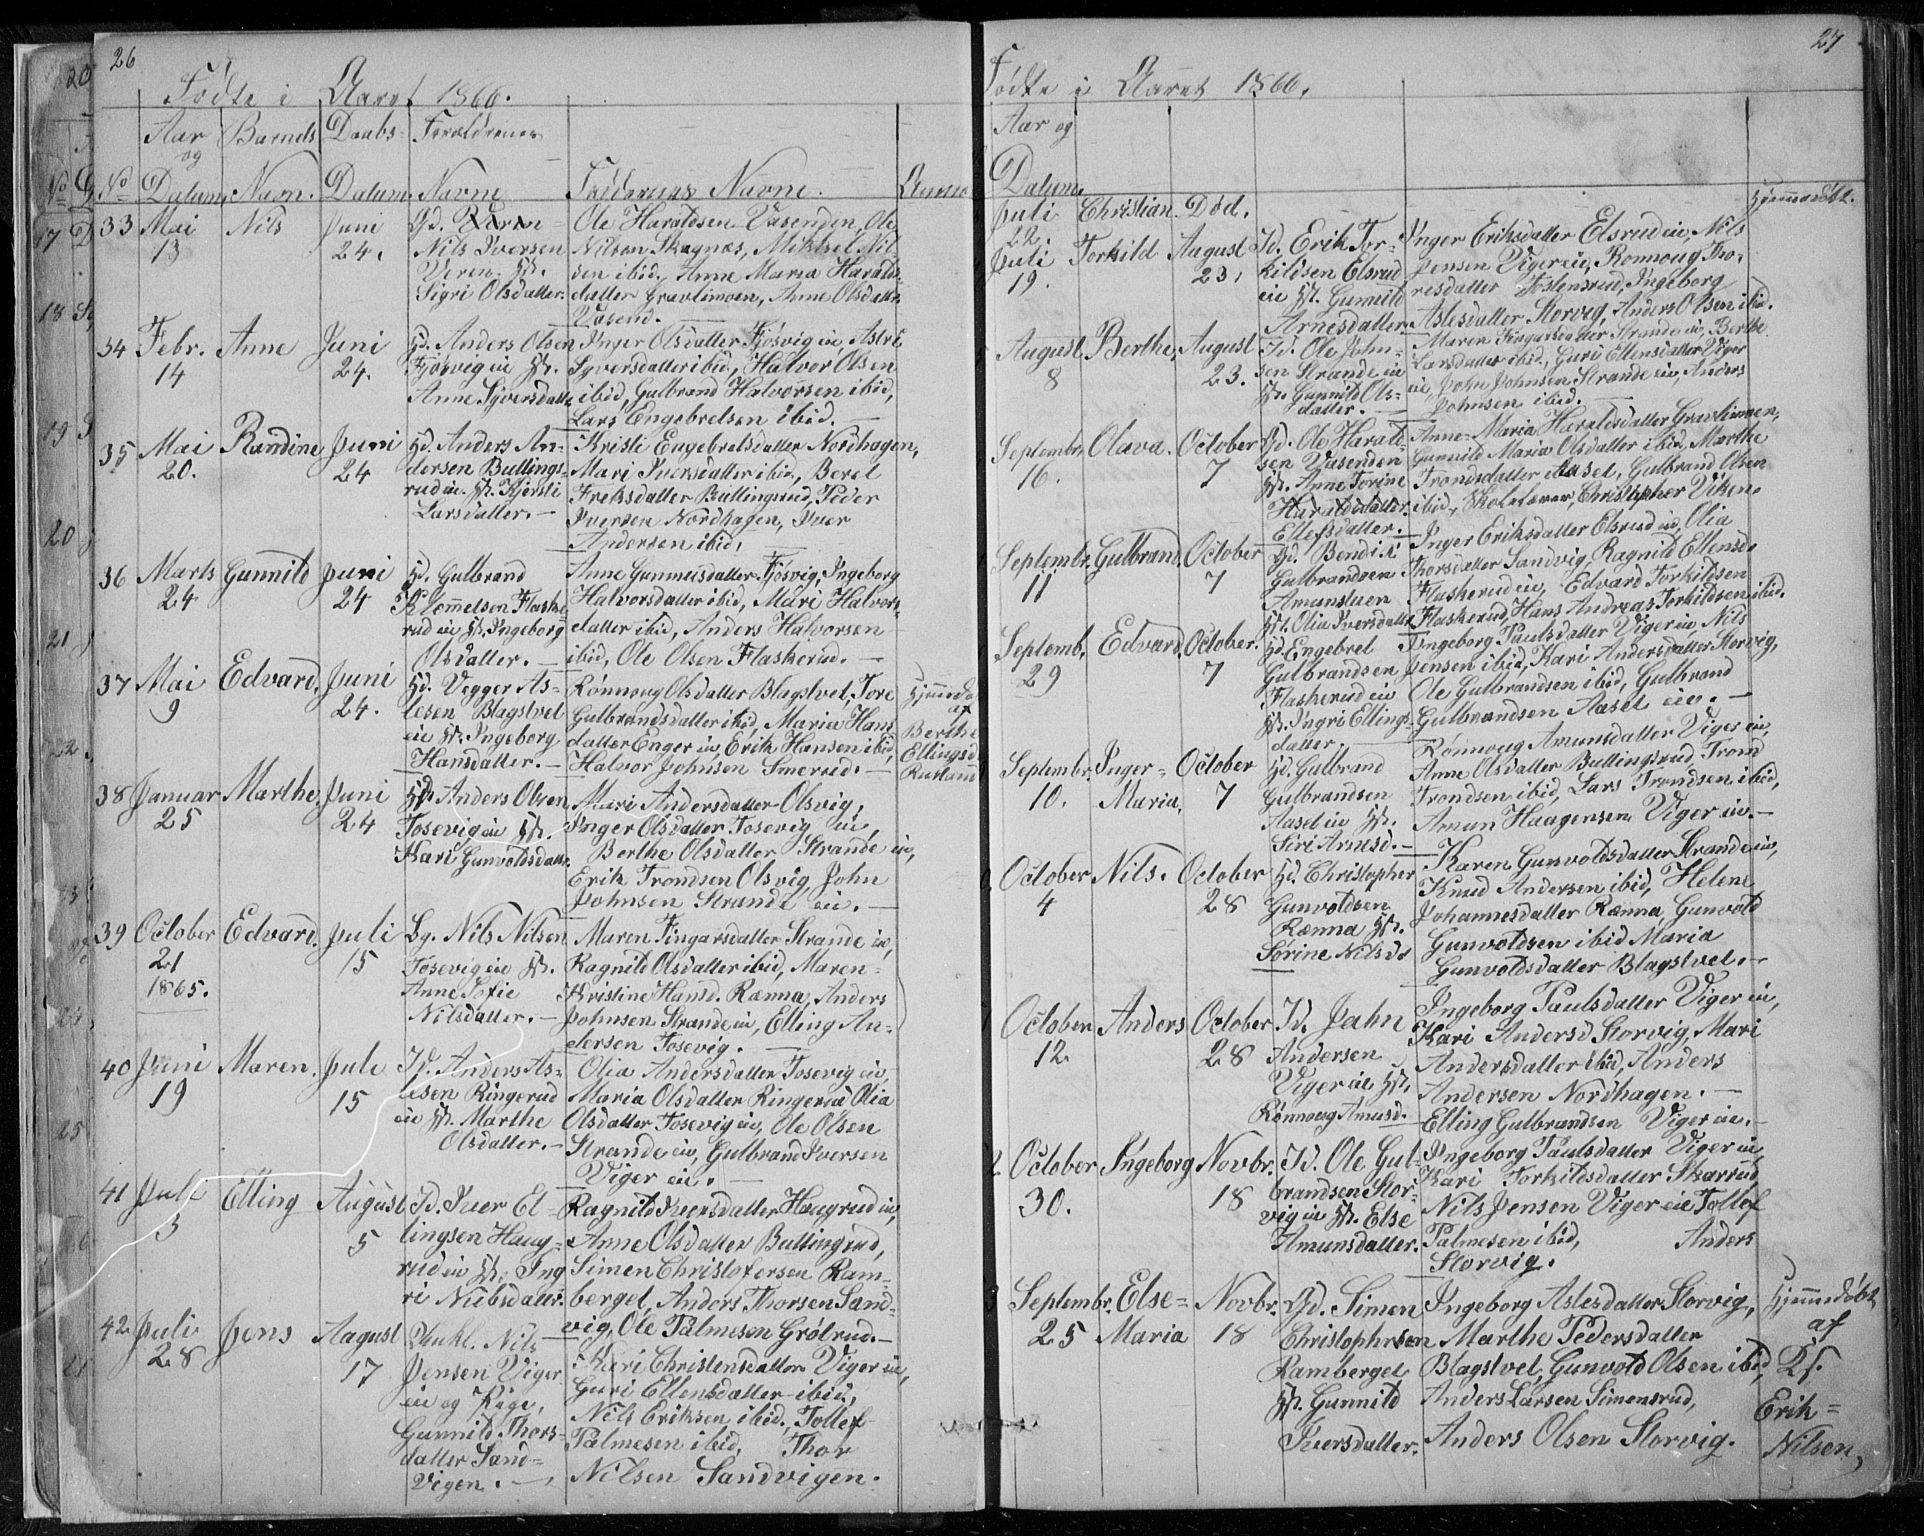 26
Fødte i Aaret 1866.
Aar og Barnets Daabs- Forældrenes
No Datum, Navn. Datum. Navne Faddernes Navne.
33 Mai 13 Nils Juni 24.
Nils Iversen
Sigri Olsdatter.
Ole Haraldsen Vasenden, Ole
Nilsen Skagnæs, Mikkel Nil-
sen ibid, Anne Maria Haralds-
datter Gravlimoen, Anne Olsdatter
Vasend.
34 Febr. 14 Anne Juni 24.
Gd. Anders Olsen
Fjøsvig eie H.
Anne Syversdatter
Inger Olsdatter Fjøsvig eie, Astri
Syversdatter ibid, Halvor Olsen
ibid, Gulbrand Halvorsen ibid,
Lars Engebretsen ibid.
35 Mai 20. Randine Juni 24
Anders An-
dersen Bullings-
rud eie. H. Kjersti
Larsdatter.
Kristi Engebretsdatter Nordhagen,
Mari Iversdatter ibid, Beret
Bullingsrud, Peder
Iversen Nordhagen, Iver
Andersen ibid,
36 Marts 24 Gunnild Juni 24
Gulbrand
Klemmetsen Flaske-
rud eie H. Ingeborg
Olsdatter.
Anne Gunneisdatter Fjøsvig, Ingeborg
Halvorsdatter ibid, Mari Halvors-
datter ibid, Anders Halvorsen
ibid, Ole Olsen Flaskerud.
37 Mai 9 Edvard. Juni 24.
Vegger As-
lesen Blagstvet
eie H. Ingeborg
Hansdatter.
Rønnoug Olsdatter Blagstvet, Tore
Gulbrandsdatter ibid, Maria Hans-
datter Enger eie Erik Hansen ibid,
Halvor Johnsen Smerud.
Hjemmed.
af
Berthe
Ellingsd.
38 Januar 25 Marthe. Juni 24
Anders Olsen
Tosevig eie H.
Kari Gunvoldsdatter
Mari Andersdatter Olsvig,
Inger Olsdatter Tosevig eie,
Berthe Olsdatter Strande eie,
Erik Trondsen Olsvig, John
Johnsen Strande eie.
39 October 21 1865. Edvard. Juli 15
Nils Nilsen
Tosevig eie H.
Anne Sofie
Nilsdatter.
Maren Fingarsdatter Strande eie,
Ragnild Olsdatter ibid, Maren
Kristine Hansd. Rænna, Anders
Johnsen Strande eie, Elling An-
dersen Tosevig.
40 Juni 19 Maren. Juli 15
Anders As-
lesen Ringerud
eie H. Marthe
Olsdatter.
Olia Andersdatter Tosevig eie
Maria Olsdatter Ringerud Olia
Olsdatter Tosevig eie, Ole Olsen
Strande eie, Gulbrand Iversen
Viger eie.
41 Juli 3 Elling August 5
Iver El-
lingsen Haug-
rud eie H. Ing-
ri Nubsdatter.
Ragnild Iversdatter Haugrud eie,
Anne Olsdatter Bullingsrud,
Simen Christofersen Ram-
berget, Anders Thorsen Sand-
vig, Ole Palmesen Grølrud.
42. Juli 28 Jens August 17
Ynkl. Nils
Jensen Viger
eie og Pige,
Gunnild Thors-
datter Sand-
vigen.
Kari Christensdatter Viger eie,
Guri Ellensdatter ibid,
Nils Eriksen ibid, Tollef
Palmesen ibid, Thor
Nilsen Sandvigen.
27
Fødte i Aaret 1866.
Aar og
Datum.
Hjemmedøbt.
Juli 22. Christian. Død.
Juli 19. Torkild August 23,
Erik Tor-
kildsen Elsrud
eie H. Gunnild
Arnesdatter
Inger Eriksdatter Elsrud eie, Nils
Jensen Viger eie, Ronnoug Tho-
resdatter Ingeborg
Aslesdatter Storvig, Anders Olsen ibid.
August 8 Berthe, August 23.
Ole John-
sen Strande eie
H. Gunnild Ols-
datter.
Maren Fingarsdatter Strande eie, Berthe
Larsdatter ibid, Guri Ellensdatter Viger
eie, John Johnsen Strande eie, Anders
Johnsen ibid.
Septembr. 16. Olava. October 7
Gd. Ole Harald-
sen Vasenden
H. Anne Torine
Haraldsdatter.
Ellefsdatter.
Anne-Maria Haraldsdatter Gravlimoen,
Gunnild Maria Olsdatter ibid, Marthe
Trondsdatter Aaset, Gulbrand Olsen
ibid, Skolelærer Christopher Viken.
Septembr. 11 Gulbrand. October 7
Gd. Bendik
Gulbrandsen
Amunsluen
H. Olia Iversdatter
Inger Eriksdatter Elsrud eie, Olia
Thorsdatter Sandvig, Ragnild Ellensd.
Flaskerud eie, Edvard Torkildsen
Flaskerud, Hans Andreas Torkildsen ibid.
Septemb. 29 Edvard. October. 7
Engebret
Gulbrandsen
Flaskerud eie
H. Ingri Ellings-
datter
Ingeborg Paulsdatter Viger eie, Nils
Jensen ibid, Kari Andersdatter Storvig,
Ole Gulbrandsen ibid, Gulbrand
Gulbrandsen Aaset eie.
Septembr. 10. Inger-Maria, October 7
Gulbrand
Gulbrandsen
Aaset eie H.
Siri Arnesd.
Rønnoug Amunsdatter Viger eie,
Anne Olsdatter Bullingsrud, Trond
Trondsen ibid, Lars Trondsen ibid,
Amun Haagensen Viger eie.
October 4 Nils. October 28
Christopher
Gunvoldsen
Rænna H.
Sørine Nilsd.
Karen Gunvoldsdatter Strande eie,
Knud Andersen ibid, Helene
Johannesdatter Rænna, Gunvold
Gunvoldsen ibid Maria
Gunvoldsdatter Blagstvet.
October 12. Anders October 28
Jahn
Andersen
Viger eie H.
Rønnoug Amund.
Ingeborg Paulsdatter Viger eie,
Kari Andersd Storvig, Mari
Andersdatter ibid, Anders
Andersen Nordhagen.
Elling Gulbrandsen Viger eie.
October 30. Ingeborg Novbr. 18
Ole Gul-
brandsen Stor-
vig eie H. Else
Amunsdatter.
Ingeborg Paulsdatter Viger eie,
Kari Torkildsdatter Skarrud,
Nils Jensen Viger eie Tollef
Palmesen ibid, Anders
Storvig.
Septembr. 25 Else-Maria Novbr. 18
Gd. Simen
Christophersen
Ramberget
H. Gunnild
Iversdatter.
Ingeborg Aslesdatter Storvig,
Marthe Pedersdatter
Blagstvet, Gunvold Olsen ibid,
Anders Larsen Simensrud,
Anders Olsen Storvig.
Hjemmedøbt
af
Erik
Nilsen,